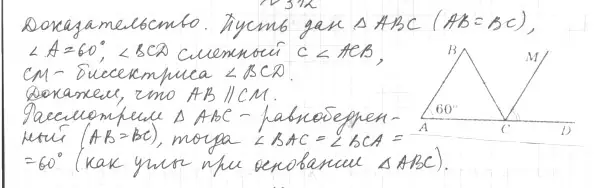 Доказательство. Пусть дан △ ABC (AB = BC),
∠ A = 60°, ∠ BCD смежный с ∠ ACB,
CM - биссектриса ∠ BCD.
Докажем, что AB ∥ CM.
Рассмотрим △ ABC - равнобедрен-
ный (AB = BC), тогда ∠ BAC = ∠ BCA =
= 60° (как углы при основании △ ABC).
B M
60°
A C D